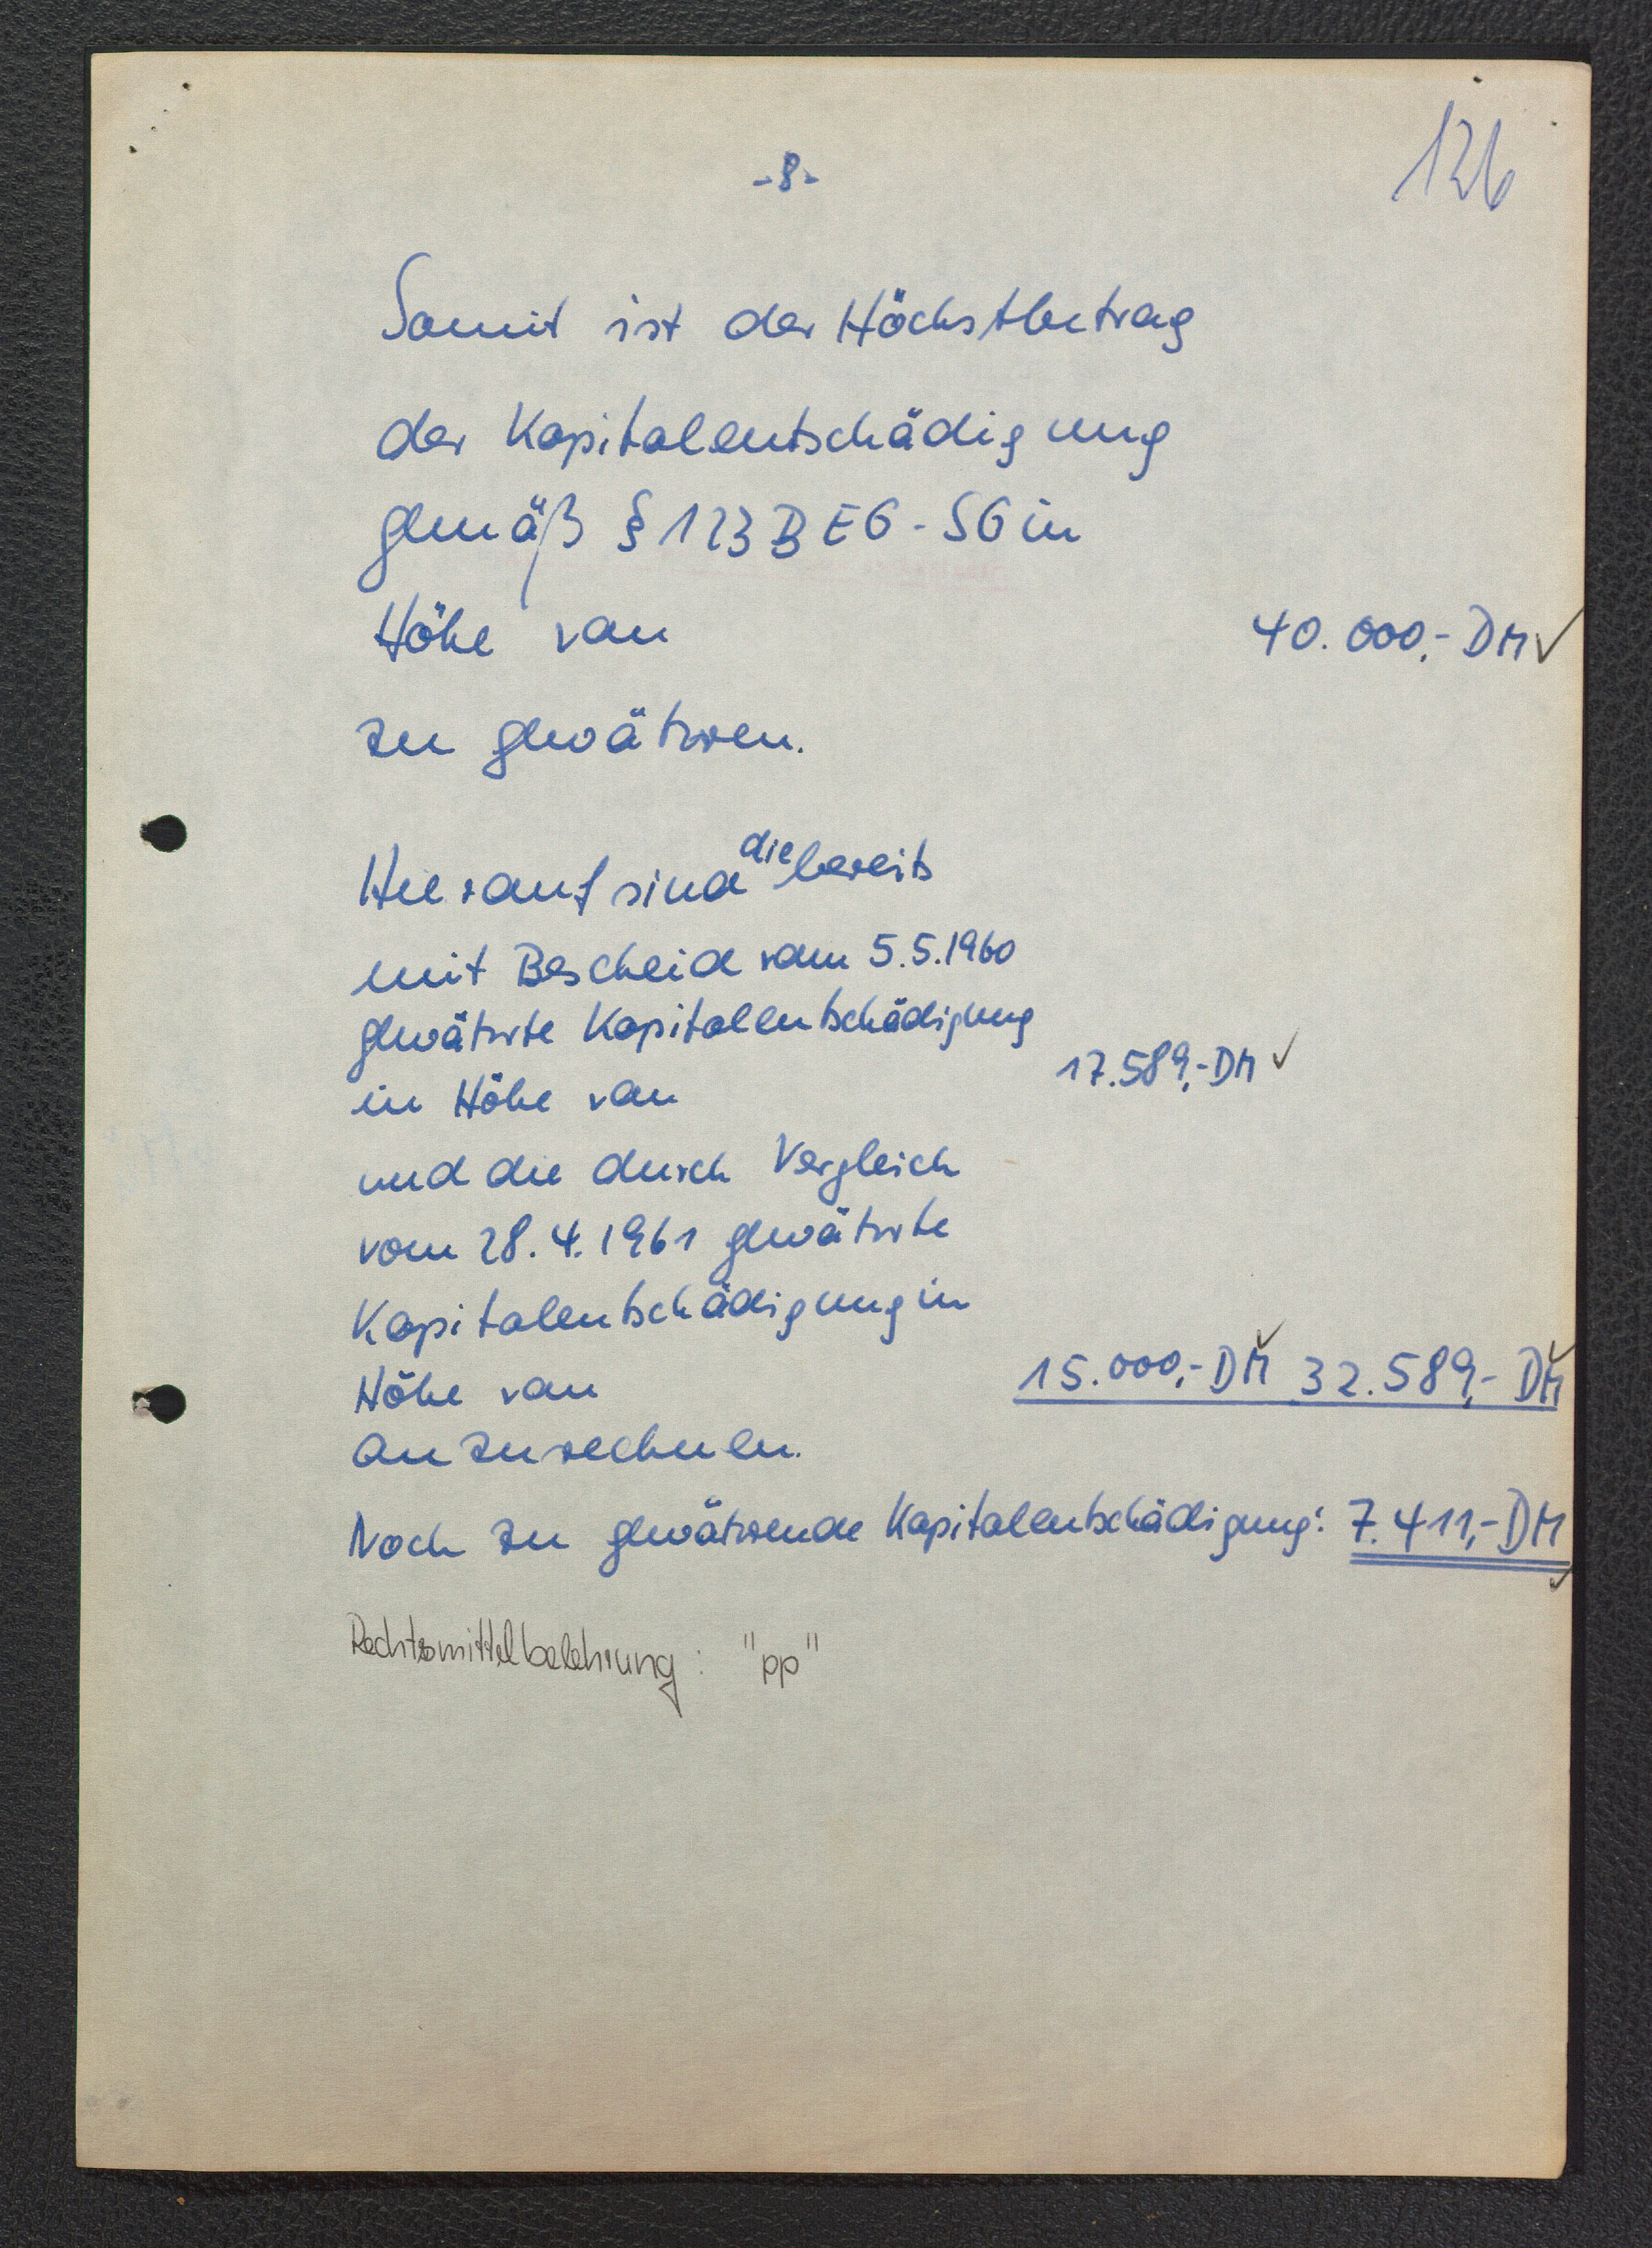 -8-
126
Somit ist der Höchstbetrag
der Kapitalentschädigung
gemäß § 123 BEG-SG in
Höhe von 40.000,- DM ✓
zu gewähren.
Hierauf sind die bereits
mit Bescheid vom 5.5.1960
gewährte Kapitalentschädigung
in Höhe von 17.589,- DM ✓
und die durch Vergleich
vom 28.4.1961 gewährte
Kapitalentschädigung in
Höhe von 15.000,- DM ✓ 32.589,- DM ✓
anzurechnen.
Noch zu gewährende Kapitalentschädigung: 7.411,- DM ✓
Rechtsmittelbelehrung: "pp"